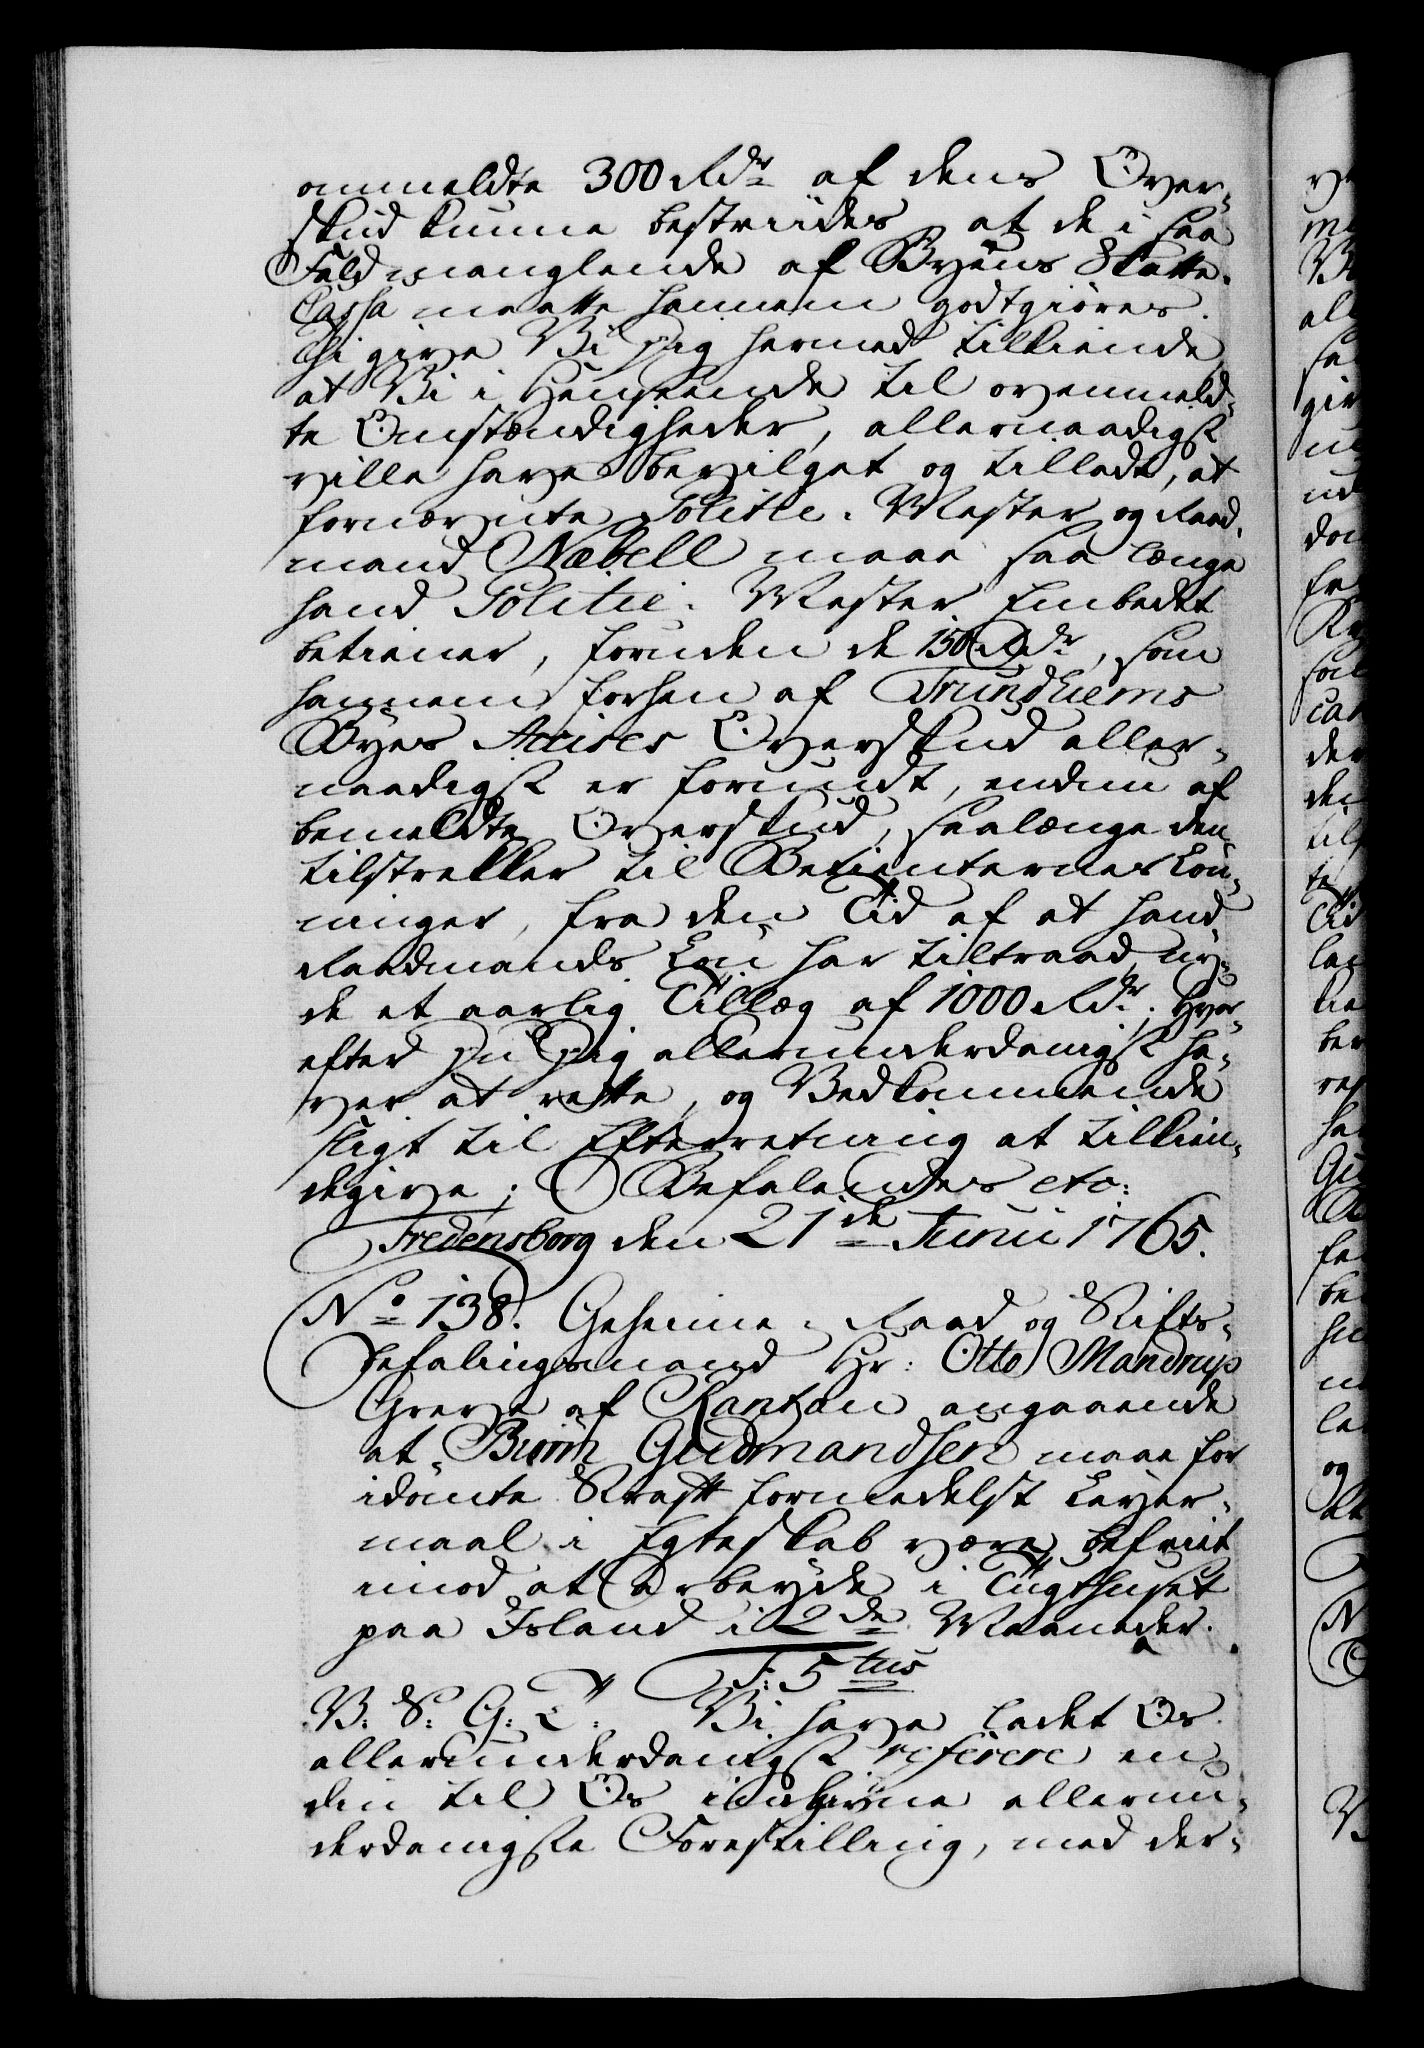 ommeldte 300 Rdr af dens Over-
skud kunne bestriides, at de i saa
Fald manglende af Byens Skatte-
Cassa maatte hannem godtgiøres.
Thi give Vi Dig hermed tilkiende,
at Vi i Henseende til ovenmeld-
te Omstændigheder, allernaadigst
ville have bevilget og tilladt, at
fornævnte Politie-Mester og Raad-
mand Næbell maae saa længe
hand Politie-Mester Embedet
betiener, foruden de 150 Rdr, som
hannem forhen af Trundhiems
Byes Accises Overskud aller-
naadigst er forundt, endnu af
bemeldte Overskud, saalænge den
tilstrekker til Betienternes Løn-
ninger, fra den Tid af at hand
Raadmands Løn har tiltraad, ny-
de et aarlig Tillæg af 1000 Rdr; Hvor-
efter Du Dig allerunderdanigst ha-
ver at rette, og Vedkommende
sligt til Efterretning at tilkien-
degive; Befalendes etc:
Fredensborg den 21de Junii 1765.
No 138. Geheime-Raad og Stifts-
befalingsmand Hr: Otto Mandrup
Greve af Rantzau angaaende
at Biörn Gudmandsen maae for
idømte Straff formedelst Leyer-
maal i Egteskab være befriet
imod at arbeyde i Tugthuset
paa Island i 2de Maaneder.
F: 5tus
V: S: G: T: Vi have ladet Os
allerunderdanigst referere en
din til Os indkomne allerun-
derdanigste Forestilling, med der-